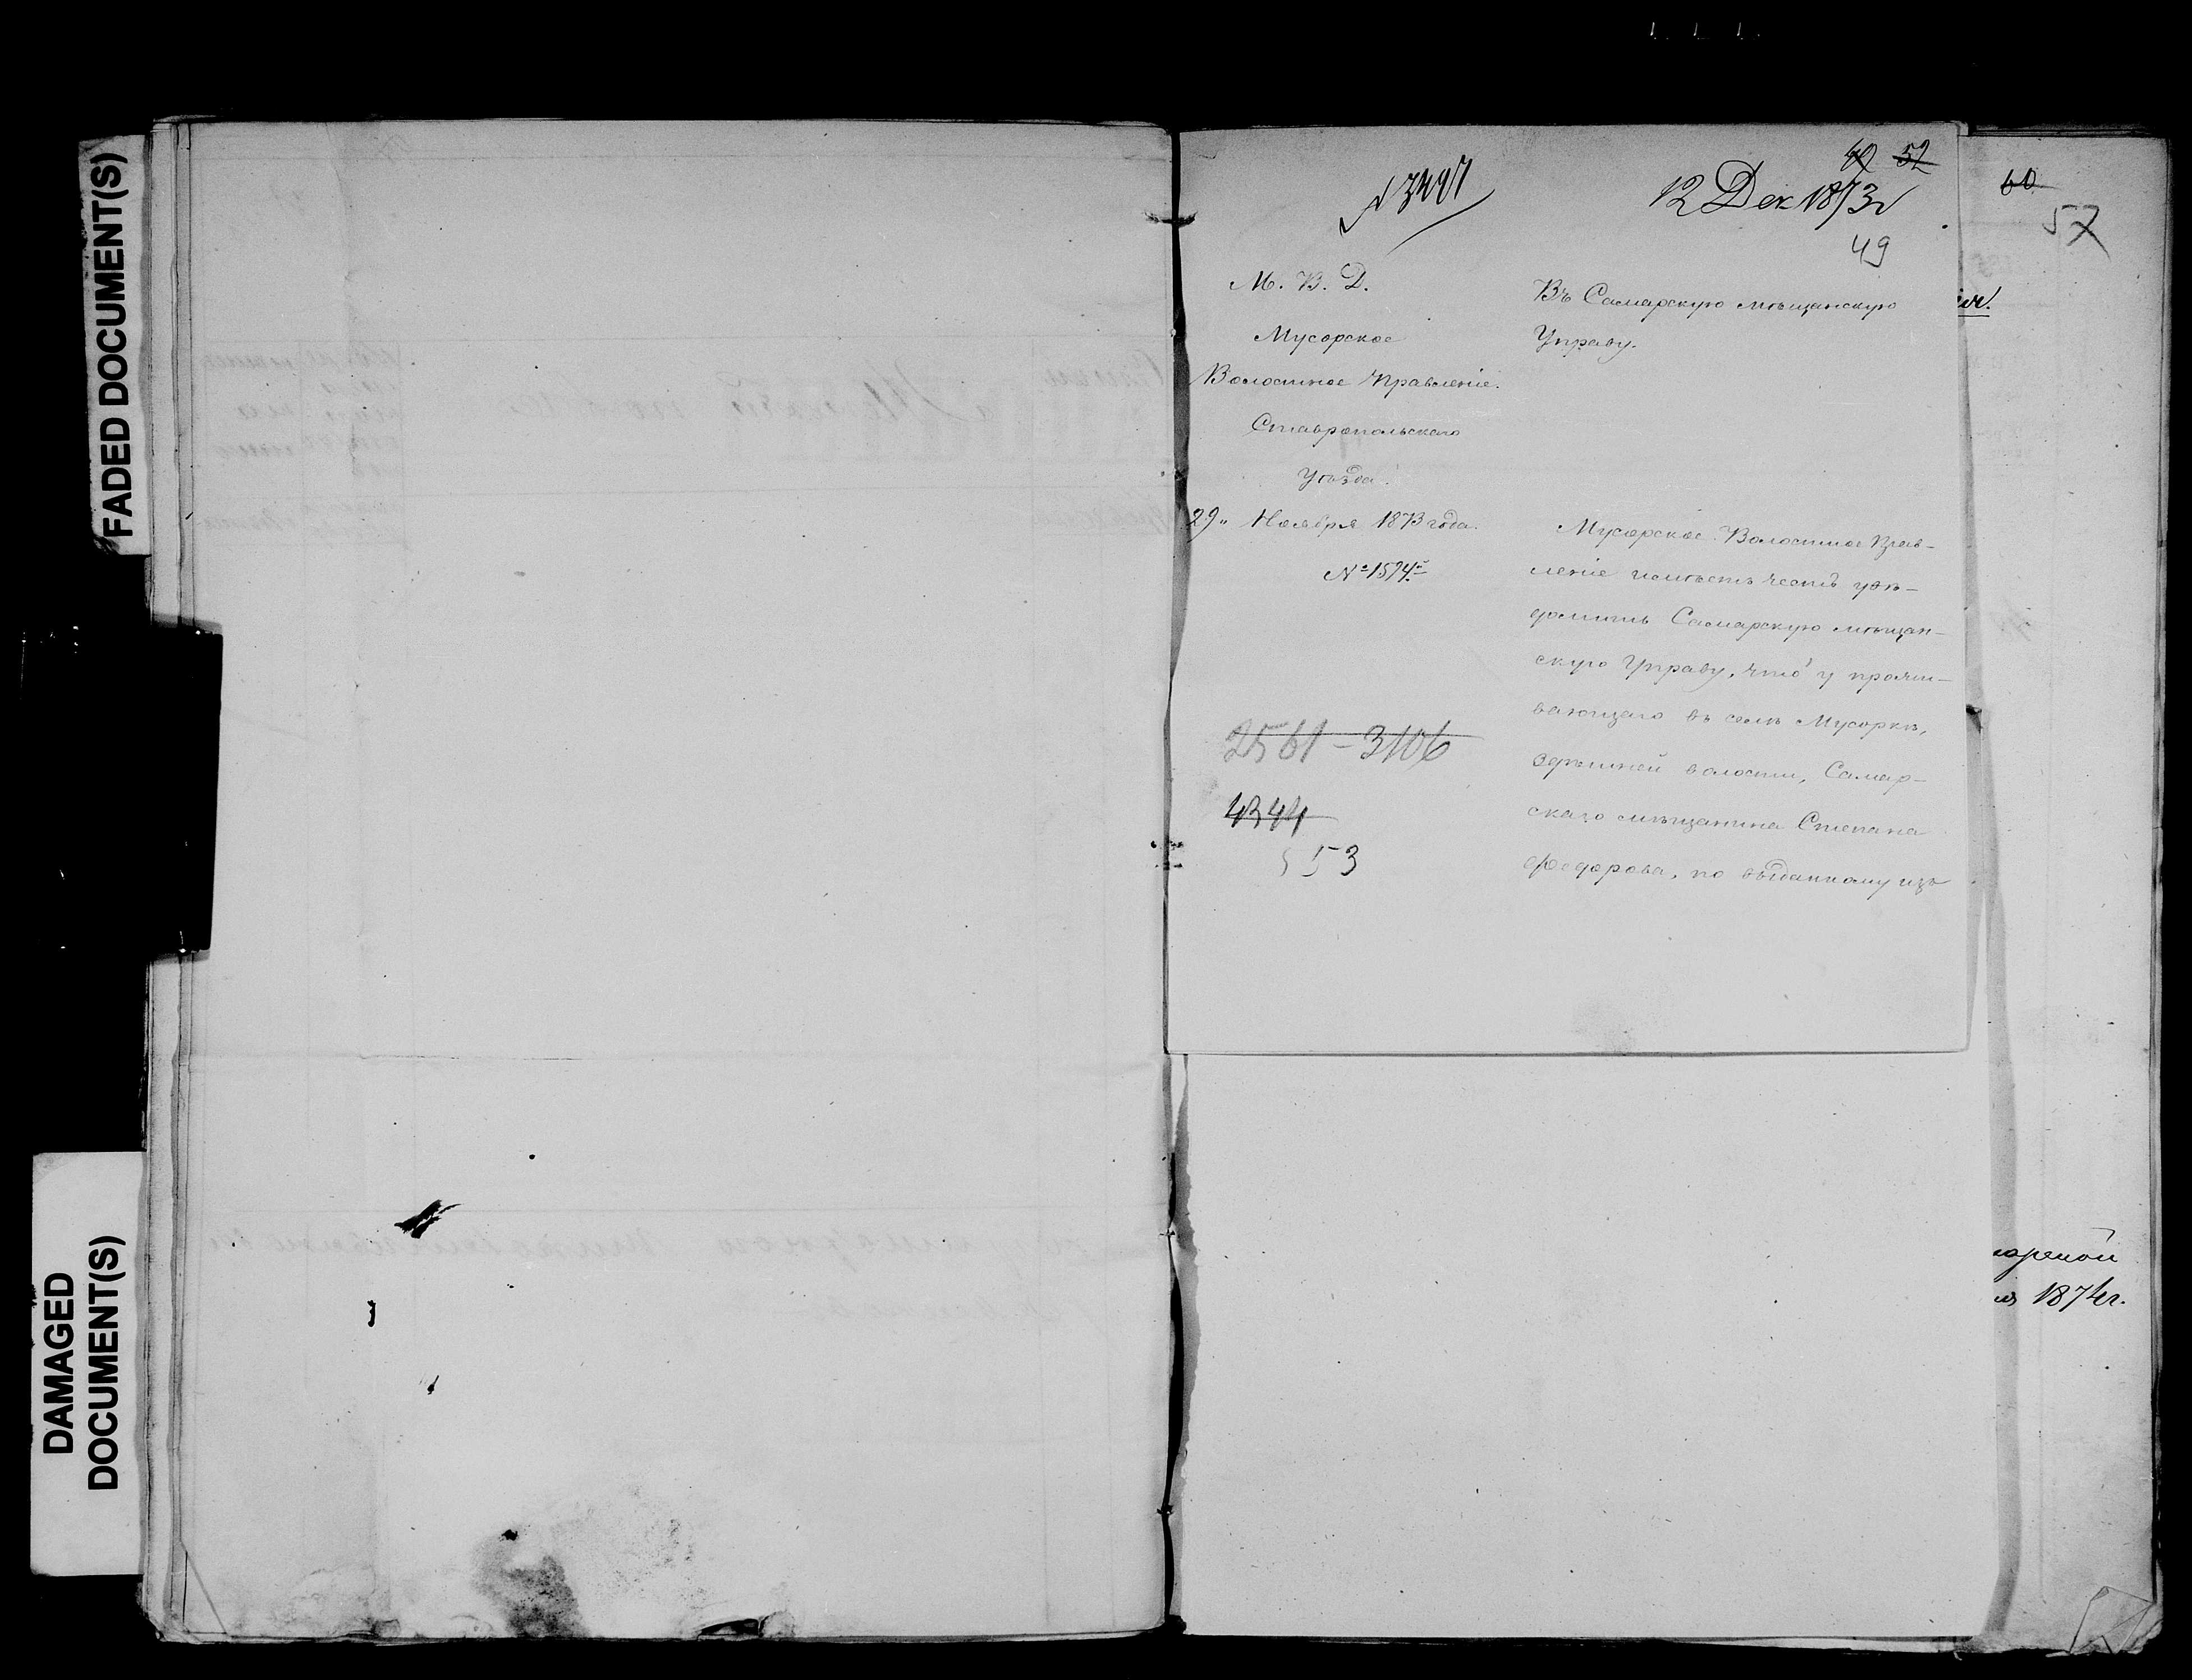 FADED DOCUMENT(S)
DAMAGED
DOCUMENT(S)
52
12 Дек 1873
49
М. В. Д.
Мусорское
Волостное Правленіе.
Ставропольскаго
Уѣзда.
29„ Ноября 1873 года.
№ 1574.
2561 - 3106
4344
53
Въ Самарскую мѣщанскую
Управу.
Мусорское Волостное Прав-
леніе имѣетъ честь увѣ-
домить Самарскую мѣщан-
скую Управу, что у прожи-
вающаго въ селѣ Мусоркѣ,
здѣшней волости, Самар-
скаго мѣщанина Степана
Федорова, по выданному изъ
60
57
1874 г.